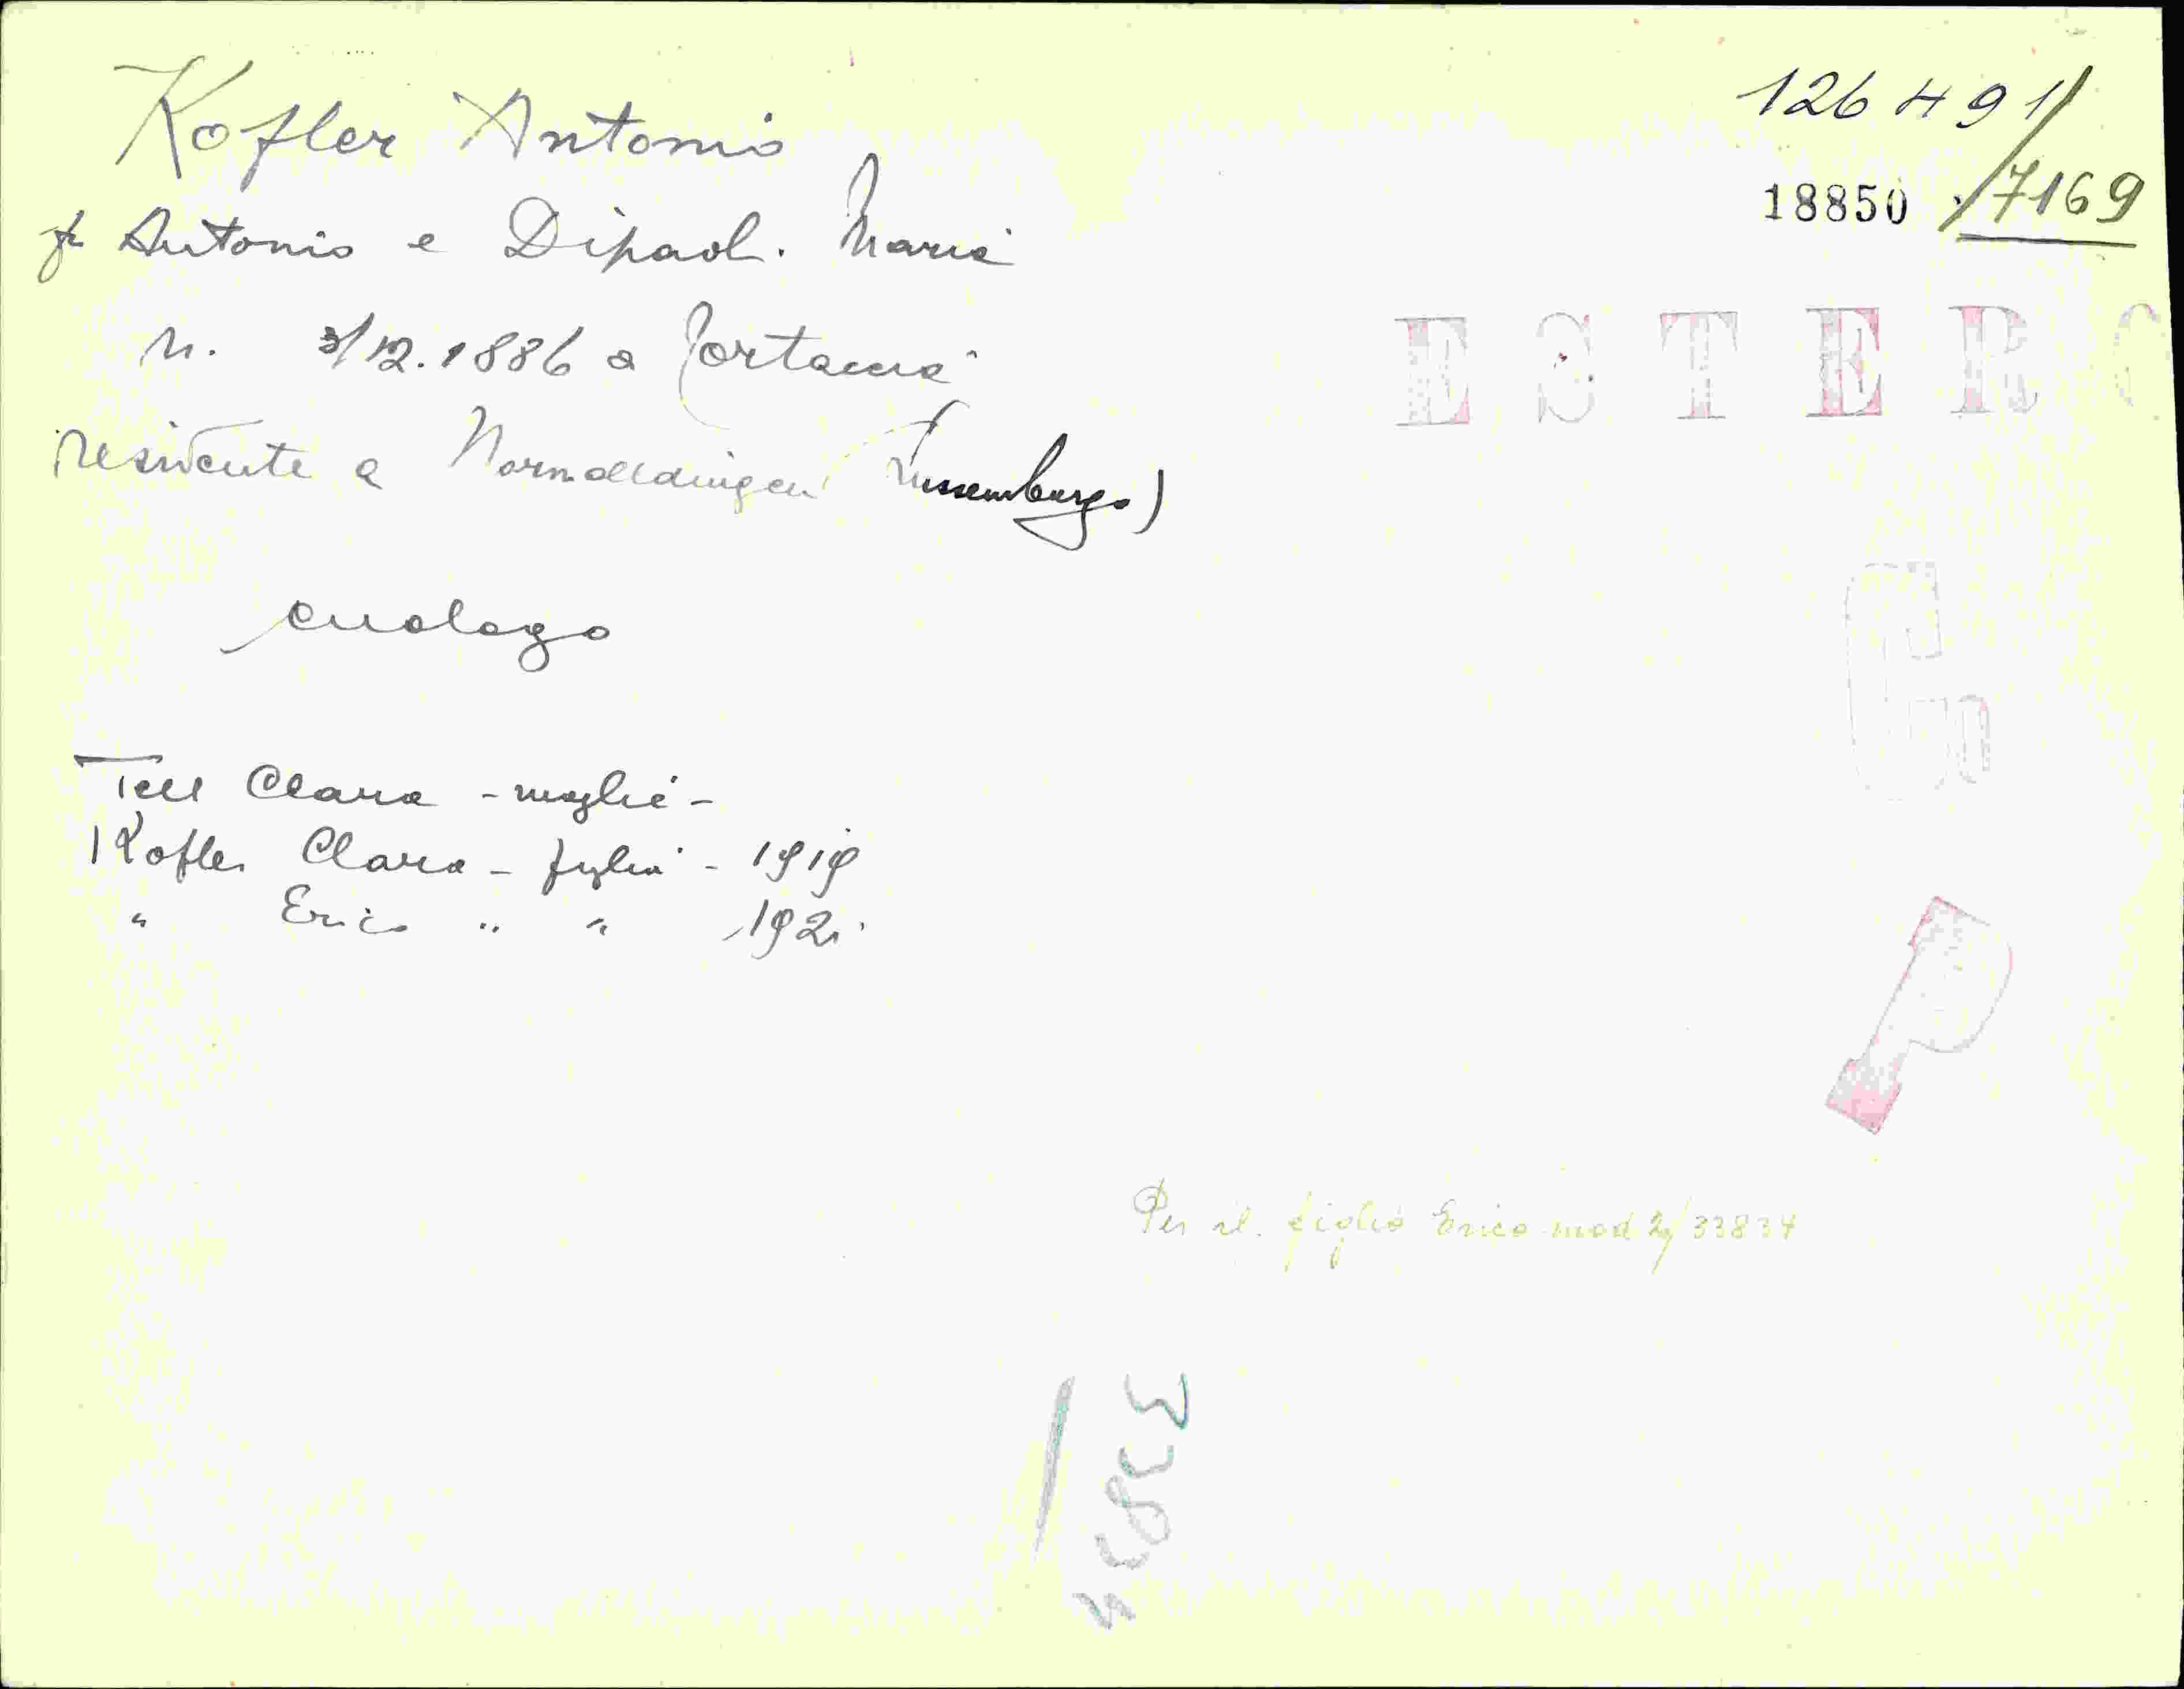 Kofler Antonio
126491/
18850 ./7169
fu Antonio e Dipaol. Maria
ESTERO
n. 3/12.1886 a Cortaccia
residente a Wormeldingen (Lussemburgo)
G
enologo
Tell Clara - moglie -
Kofler Clara - figlia - 1919
" Erico " " 1921
P
Per il figlio Erico mod 2/33834
33834